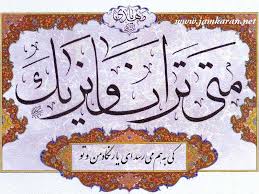 www.jamkaran.net
متى ترانا و نريك
کی به هم می رسد ای یار نگاه من و تو